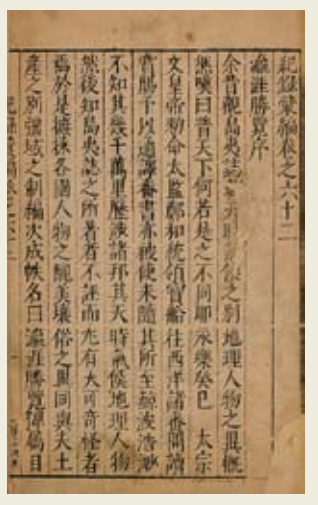 紀錄彙編卷之六十二
瀛涯勝覽序
余昔觀島夷誌載天時氣候之別地理人物之異慨
然嘆曰普天下何若是之不同耶永樂癸巳　太宗
文皇帝勑命太監鄭和統領寶船往西洋諸番開讀
賞賜予以通譯番書亦被使末隨其所至鯨波浩渺
不知其幾千萬里歷涉諸邦其天時氣候地理人物
然後知島夷誌之所著者不誣而尤有大可奇怪者
焉於是摭採各國人物之醜美壤俗之異同與夫土
產之別疆域之制編次成帙名曰瀛涯勝覽俾屬目